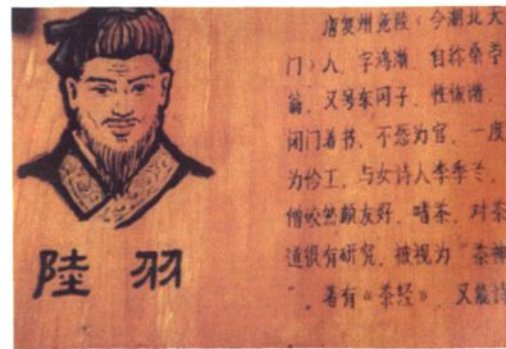 唐复州竟陵(今湖北天
门)人,字鸿渐,自称桑苎
翁,又号东冈子,性诙谐,
闭门着书,不愿为官,一度
为伶工,与女诗人李季兰,
僧皎然颇友好,嗜茶,对茶
道很有研究,被视为“茶神
”。著有《茶经》,又能诗
陸羽